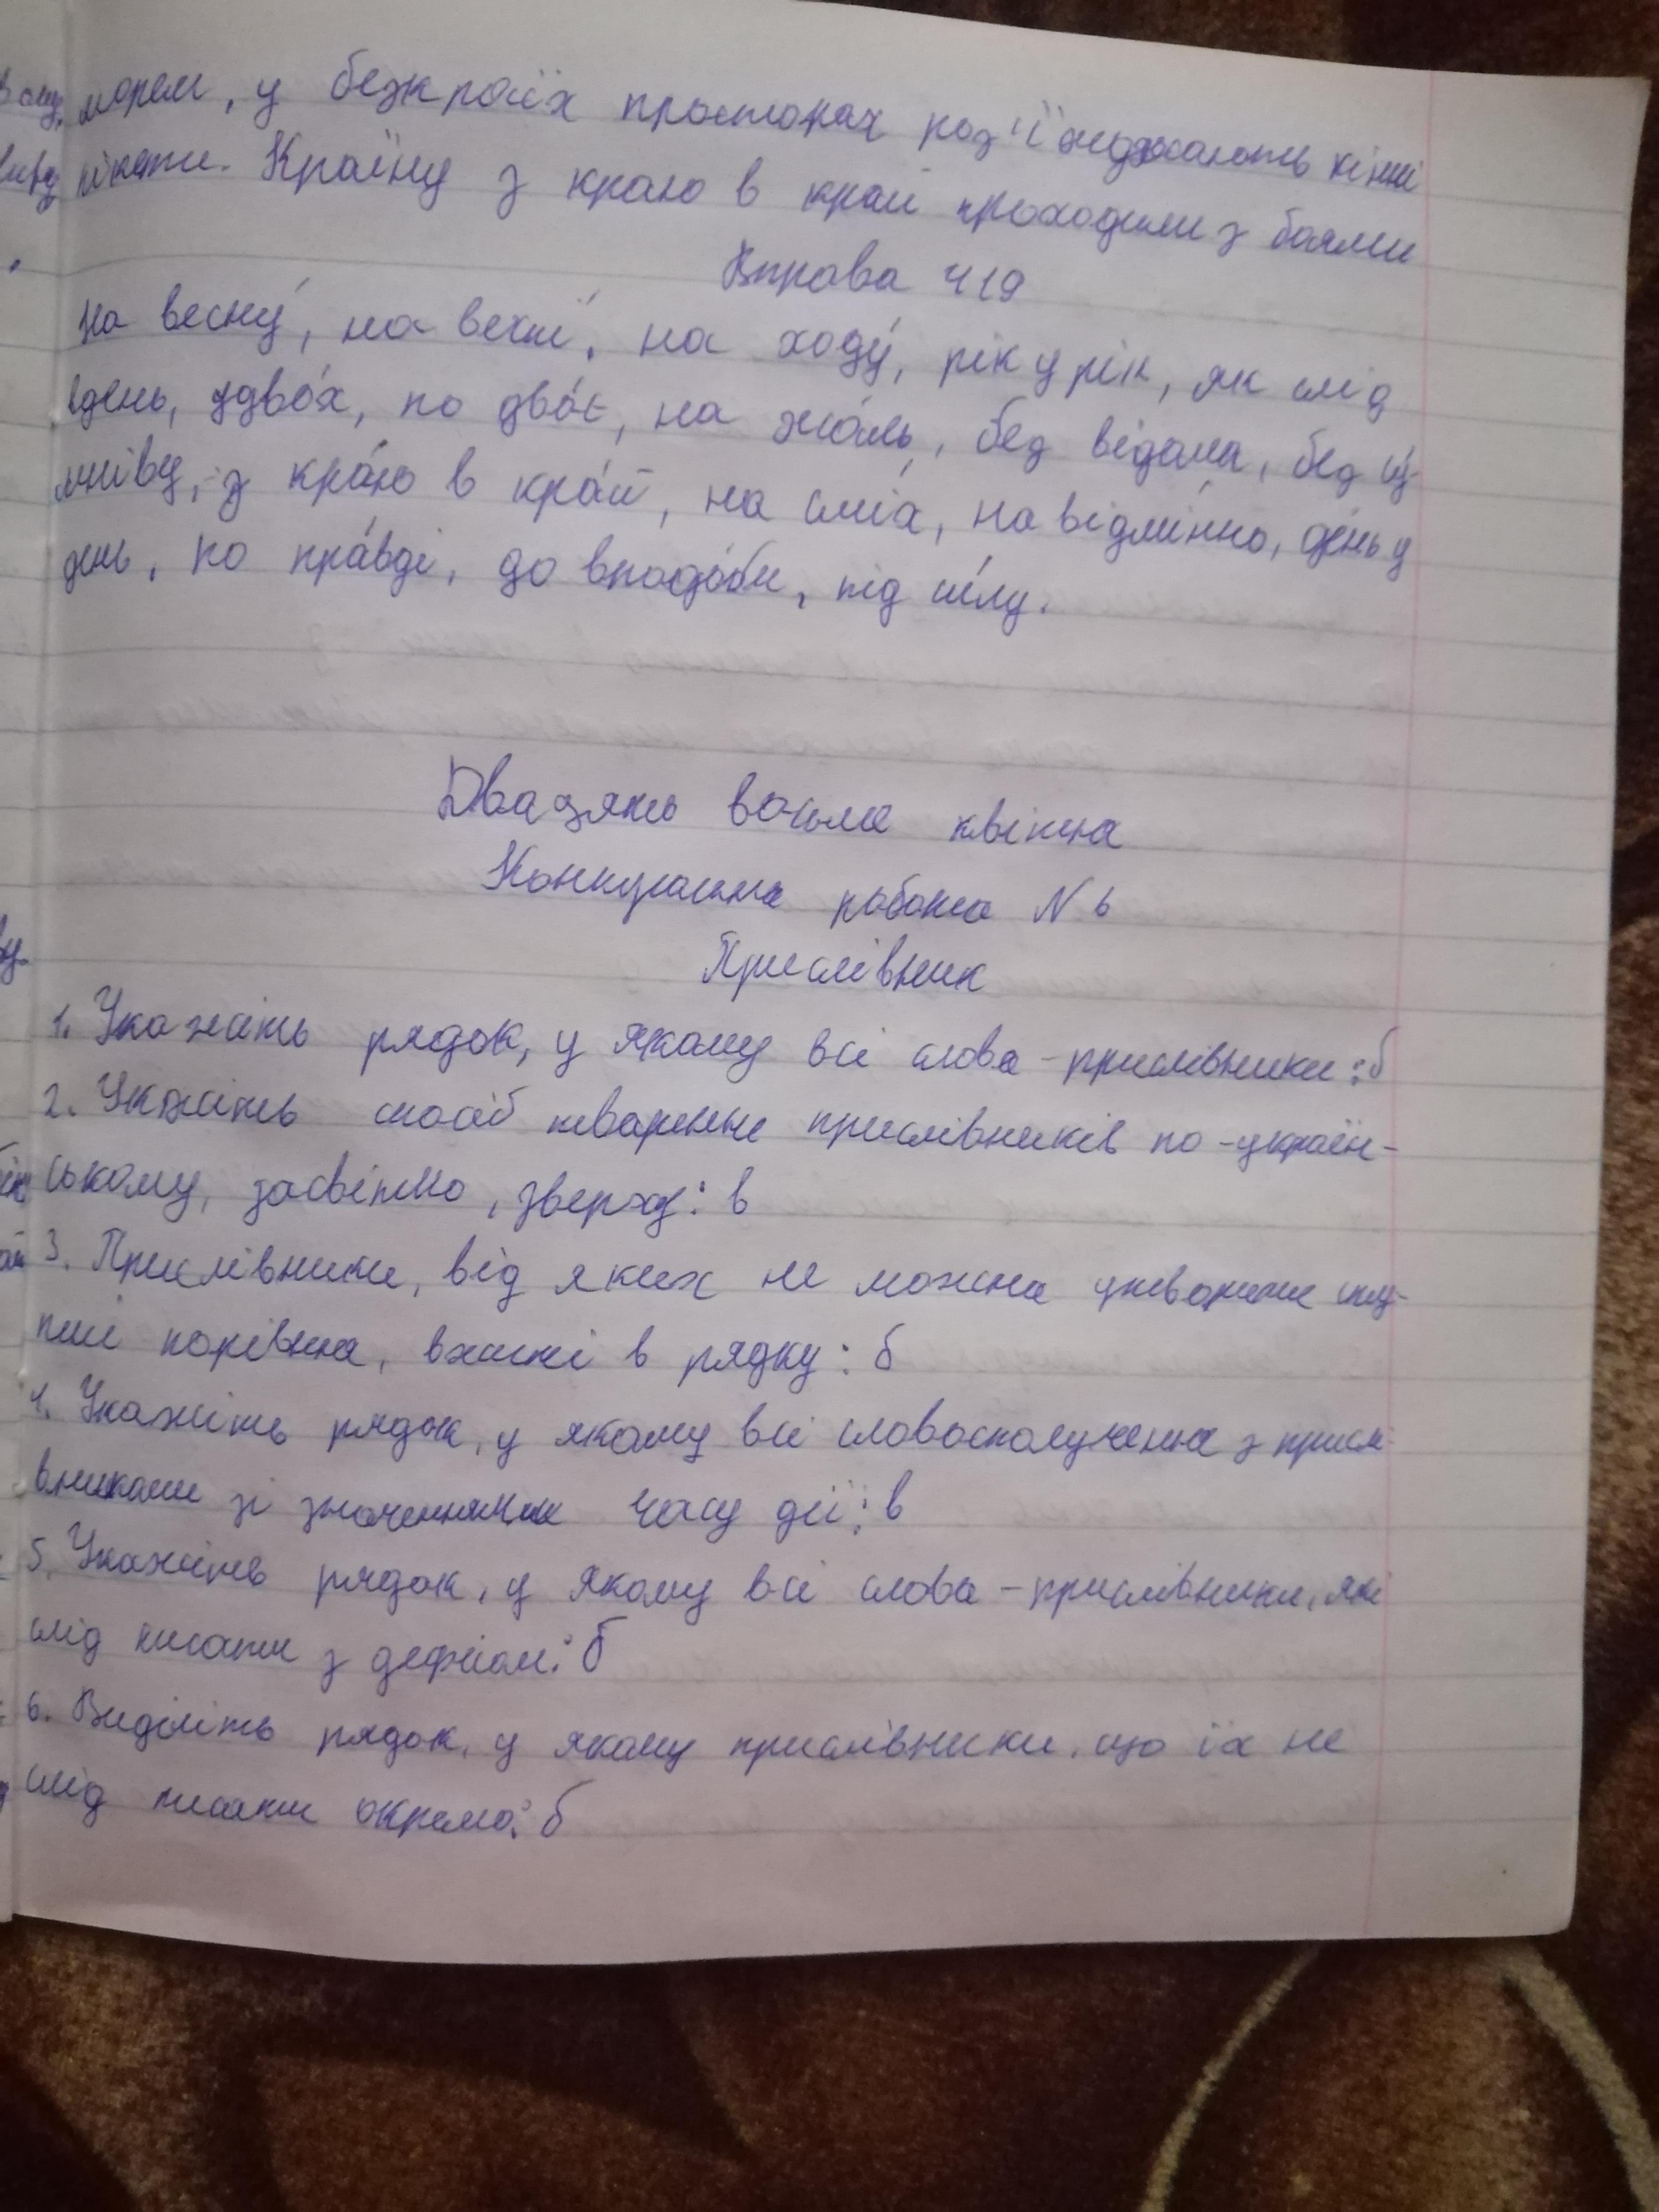 морем, у безкраїх просторах роз'їжджають кінні
пікети. Країну з краю в край проходили з боями
Вправа 419
На весну́, на ве́рхні, на ходу́, рік у рік, як слід
вдень, удво́х, по дво́є, на жа́ль, без відома, без су́-
мніву, з кра́ю в кра́й, на сміх, на відмі́нно, де́нь у
день, по пра́вді, до вподо́би, під си́лу.
Двадцять восьме квітня
Контрольна робота N 6
Прислівник
1. Укажіть рядок, у якому всі слова - прислівники: б
2. Укажіть спосіб творення прислівників по-україн-
ському, засвітло, зверху: в
3. Прислівники, від яких не можна утворити сту-
пні порівння, вжиті в рядку: б
4. Укажіть рядок, у якому всі словосполучення з присл-
вниками зі значенням часу дії: в
5. Укажіть рядок, у якому всі слова - прислівники, які
слід писати з дефісом: б
6. Виділіть рядок, у якому прислівники, що їх не
слід писати окремо: б